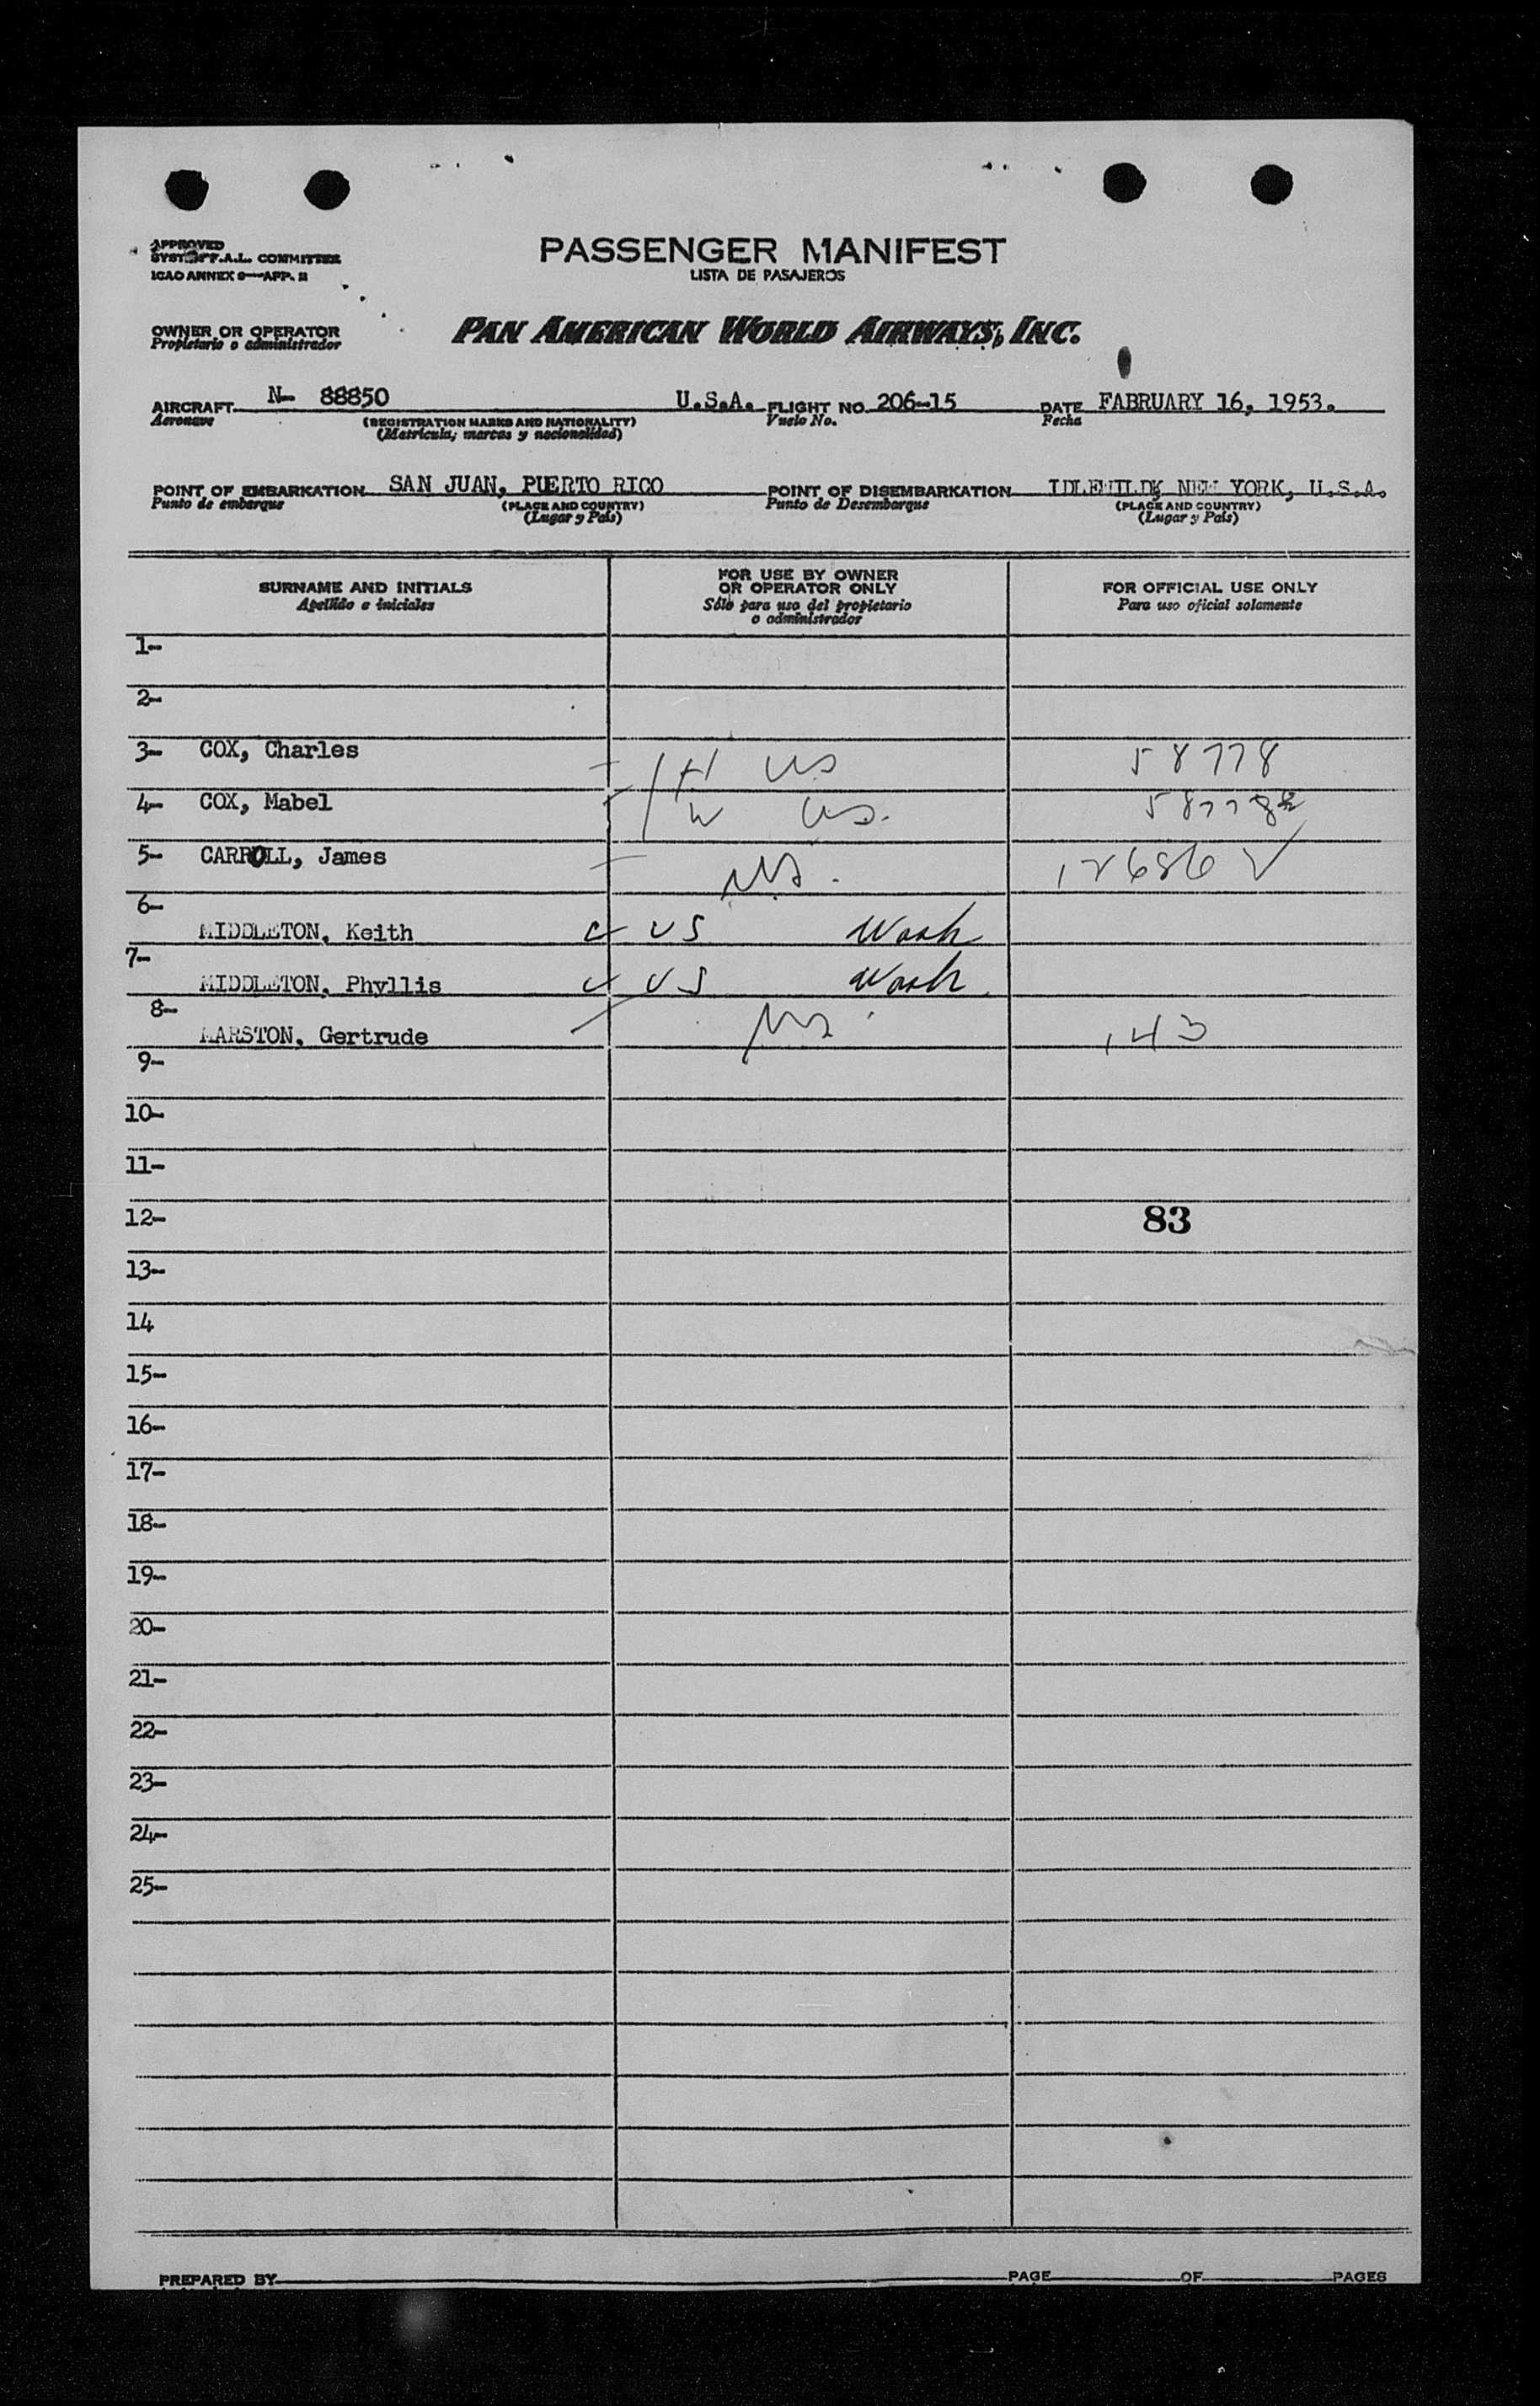 APPROVED
SYSTEM F.A.L. COMMITTEE
ICAO ANNEX 9—APP. 2
PASSENGER MANIFEST
LISTA DE PASAJEROS
OWNER OR OPERATOR
Propietario o administrador
PAN AMERICAN WORLD AIRWAYS, INC.
AIRCRAFT N- 88850 U.S.A. FLIGHT NO. 206-15 DATE FABRUARY 16, 1953.
Aeronave (REGISTRATION MARKS AND NATIONALITY) Vuelo No. Fecha
(Matrícula; marcas y nacionalidad)
POINT OF EMBARKATION SAN JUAN, PUERTO RICO POINT OF DISEMBARKATION IDLEWILDK NEW YORK, U.S.A.
Punto de embarque (PLACE AND COUNTRY) Punto de Desembarque (PLACE AND COUNTRY)
(Lugar y País) (Lugar y País)
SURNAME AND INITIALS
Apellido e iniciales
FOR USE BY OWNER
OR OPERATOR ONLY
Sólo para uso del propietario
o administrador
FOR OFFICIAL USE ONLY
Para uso oficial solamente
1-
2-
3- COX, Charles H US 58778
4- COX, Mabel W US.
5- CARROLL, James US. 12686
6-
MIDDLETON, Keith US Wash
7-
MIDDLETON, Phyllis US Wash
8-
MARSTON, Gertrude US 143
9-
10-
11-
12- 83
13-
14
15-
16-
17-
18-
19-
20-
21-
22-
23-
24-
25-
PREPARED BY PAGE OF PAGES